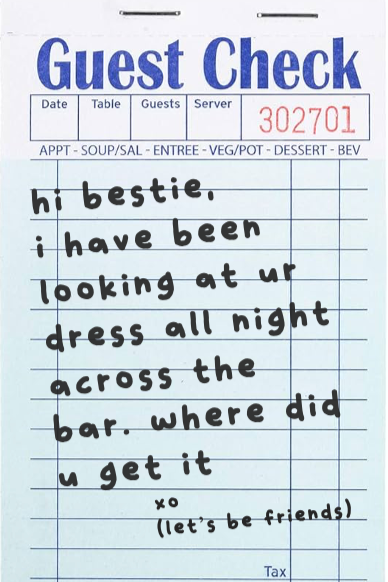 Guest Check
Date Table Guests Server 302701
APPT - SOUP/SAL - ENTREE - VEG/POT - DESSERT - BEV
hi bestie,
i have been
looking at ur
dress all night
across the
bar. where did
u get it
xo
(let's be friends)
Tax